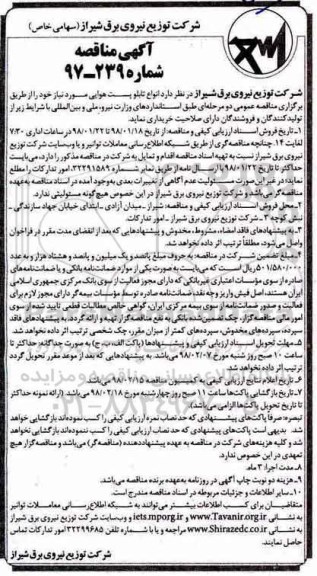 شرکت توزیع نیروی برق شیراز (سهامی خاص)
آگهی مناقصه
شماره ۲۳۹-۹۷
شرکت توزیع نیروی برق شیراز در نظر دارد انواع تابلو پست هوایی مورد نیاز خود را از طریق
برگزاری مناقصه عمومی دو مرحله‌ای طبق استانداردهای وزارت نیرو، ملی و بین‌المللی با شرایط زیر از
تولیدکنندگان و فروشندگان دارای صلاحیت خریداری نماید.
۱- تاریخ فروش اسناد ارزیابی کیفی و مناقصه: از تاریخ ۹۸/۰۱/۱۸ تا ۹۸/۰۱/۲۲ در ساعات اداری ۷:۳۰
لغایت ۱۴. چنانچه مناقصه‌گری از طریق شبکه اطلاع‌رسانی معاملات توانیر و یا وب‌سایت شرکت توزیع
نیروی برق شیراز نسبت به تهیه اسناد مناقصه اقدام و تمایل به شرکت در مناقصه مذکور را دارد، می‌بایست
حداکثر تا تاریخ ۹۸/۰۱/۲۲ با ارسال نامه از طریق نمابر شماره ۳۲۲۹۱۵۸۹ امور تدارکات را مطلع
نماید، در غیر این صورت مسئولیت عدم آگاهی از تغییرات بعدی به‌وجود آمده در اسناد مناقصه به عهده
مناقصه‌گر می‌باشد و شرکت توزیع نیروی برق شیراز در این خصوص هیچ‌گونه مسئولیتی ندارد.
۲- محل فروش اسناد ارزیابی کیفی و مناقصه: شیراز - میدان آزادی - ابتدای خیابان جهاد سازندگی -
نبش کوچه ۳ - شرکت توزیع نیروی برق شیراز - امور تدارکات.
۳- به پیشنهادهای فاقد امضاء، مشروط، مخدوش و پیشنهادهایی که بعد از انقضای مدت مقرر در فراخوان
واصل می‌شود، مطلقاً ترتیب اثر داده نخواهد شد.
۴- مبلغ تضمین شرکت در مناقصه: به حروف مبلغ پانصد و یک میلیون و پانصد و هشتاد هزار و به عدد
۵۰۱/۵۸۰/۰۰۰ ریال است که می‌بایست به صورت یکی از موارد ضمانت‌نامه بانکی و یا ضمانت‌نامه‌های
صادره از سوی مؤسسات اعتباری غیربانکی که دارای مجوز فعالیت از سوی بانک مرکزی جمهوری اسلامی
ایران هستند، اصل فیش واریز وجه نقد، ضمانت‌نامه صادره توسط مؤسسات بیمه‌گر دارای مجوز لازم برای
فعالیت و صدور ضمانت‌نامه از سوی بیمه مرکزی ایران، گواهی خالص مطالبات قطعی تایید شده از سوی
امور مالی مناقصه‌گزار، چک تضمین‌شده بانکی به نفع مناقصه‌گزار ارائه گردد. به پیشنهادهای فاقد
سپرده، سپرده‌های مخدوش، سپرده‌های کمتر از میزان مقرر، چک شخصی ترتیب اثر داده نخواهد شد.
۵- مهلت تحویل اسناد ارزیابی کیفی و پیشنهادها (پاکت الف، ب، ج) به صورت جداگانه: حداکثر تا
ساعت ۱۰ صبح روز شنبه مورخ ۹۸/۰۲/۰۷ می‌باشد. به پیشنهادهایی که بعد از موعد مقرر تحویل گردد
ترتیب اثر داده نخواهد شد.
۶- تاریخ اعلام نتایج ارزیابی کیفی به کمیسیون مناقصه ۹۸/۰۲/۱۵ می‌باشد.
۷- تاریخ بازگشایی پاکت‌ها ساعت ۱۰ صبح روز چهارشنبه مورخ ۹۸/۰۲/۱۸ می‌باشد. (ارائه نمونه حداکثر
تا تاریخ تحویل پاکت‌ها الزامی می‌باشد)
تبصره: صرفاً پاکت‌های پیشنهادی که حد نصاب نمره ارزیابی کیفی را کسب نموده‌اند بازگشایی خواهد
شد. بدیهی است پاکت‌های پیشنهادی که حد نصاب ارزیابی کیفی را کسب ننموده‌اند بازگشایی نخواهد
شد و کلیه هزینه‌های شرکت در مناقصه به عهده پیشنهاددهنده (مناقصه‌گر) می‌باشد و مناقصه‌گزار هیچ
تعهدی در این خصوص ندارد.
۸- مدت اجرا: ۳ ماه.
۹- هزینه دو نوبت چاپ آگهی در روزنامه به‌عهده برنده مناقصه می‌باشد.
۱۰- سایر اطلاعات و جزئیات مربوطه در اسناد مناقصه مندرج است.
متقاضیان برای کسب اطلاعات بیشتر می‌توانند به شبکه اطلاع‌رسانی معاملات توانیر
به نشانی www.Tavanir.org.ir و iets.mporg.ir و وب‌سایت شرکت توزیع نیروی برق شیراز
به نشانی www.Shirazedc.co.ir مراجعه و یا با شماره تلفن ۳۲۲۹۹۶۸۵ امور تدارکات تماس
حاصل نمایند.
شرکت توزیع نیروی برق شیراز